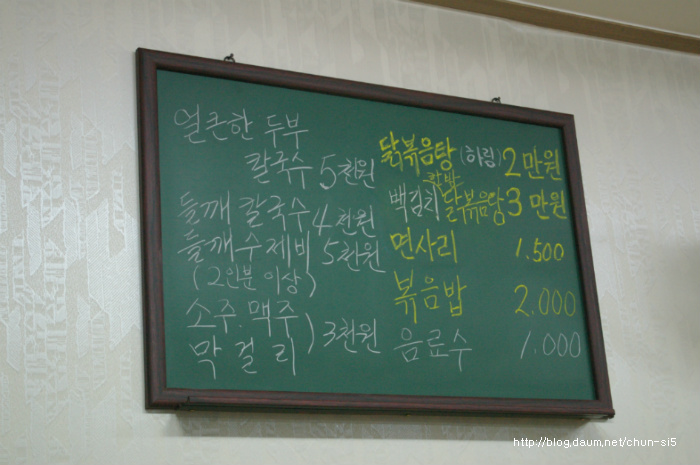 얼큰한 두부
칼국수 5천원
들깨 칼국수 4천원
들깨수제비 5천원
(2인분 이상)
소주.맥주
막걸리 ) 3천원
닭볶음탕 (하림) 2만원
백김치 닭볶음탕 3만원
면사리 1.500
볶음밥 2.000
음료수 1.000
http://blog.daum.net/chun-si5